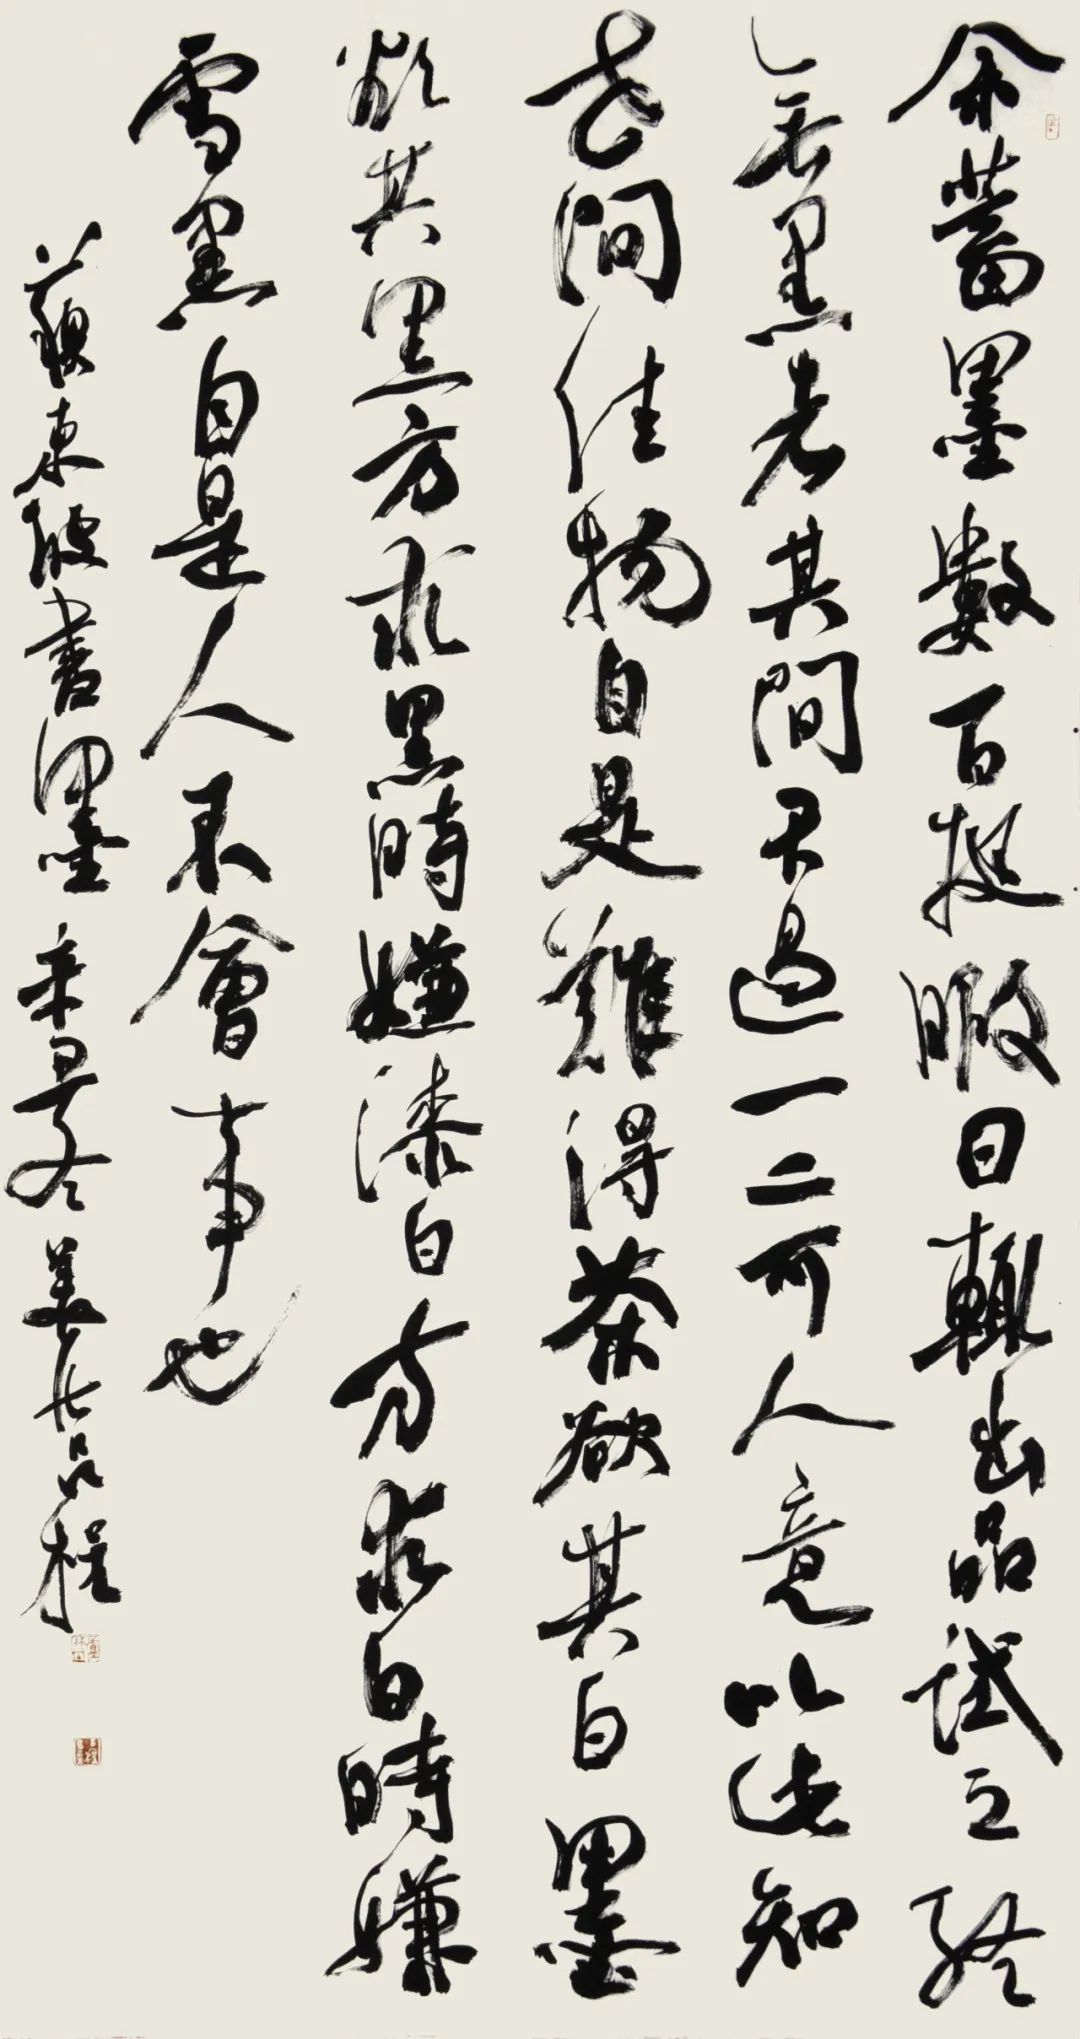 余蓄墨數百挺暇日輒出品試之終
無黑者其間不過一二可人意以此知
世間佳物自是難得茶欲其白墨
欲其黑方求黑時嫌漆白方求白時嫌
雪黑自是人不會事也
蘇東坡書墨辛丑冬